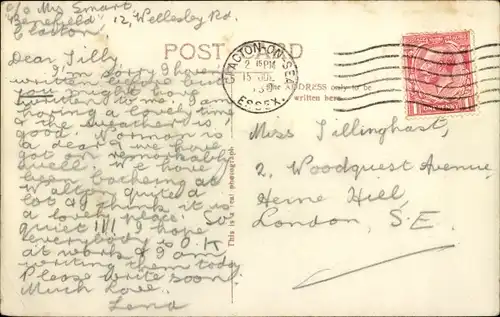 c/o Mrs Smart,
"Benefield" 12, Wellesley Rd.
Clacton
POST CARD
CLACTON-ON-SEA
ESSEX.
The ADDRESS only to be
written here.
ONE PENNY
Dear Tilly,
I'm sorry I haven't
written before but
you might have
written to me. I am
having a lovely time
& the weather is
good. Norman is
a dear & we have
got on remarkably
well. We have
been bathing at
Walton quite a
lot & I think it is
a lovely place. So
quiet!!! I hope
everybody is O.K
at work & I am
writing them today
Please write soon.
Much Love.
Lena
This is a real photograph
Miss Tillinghast,
2, Woodquest Avenue,
Herne Hill,
London, S.E.